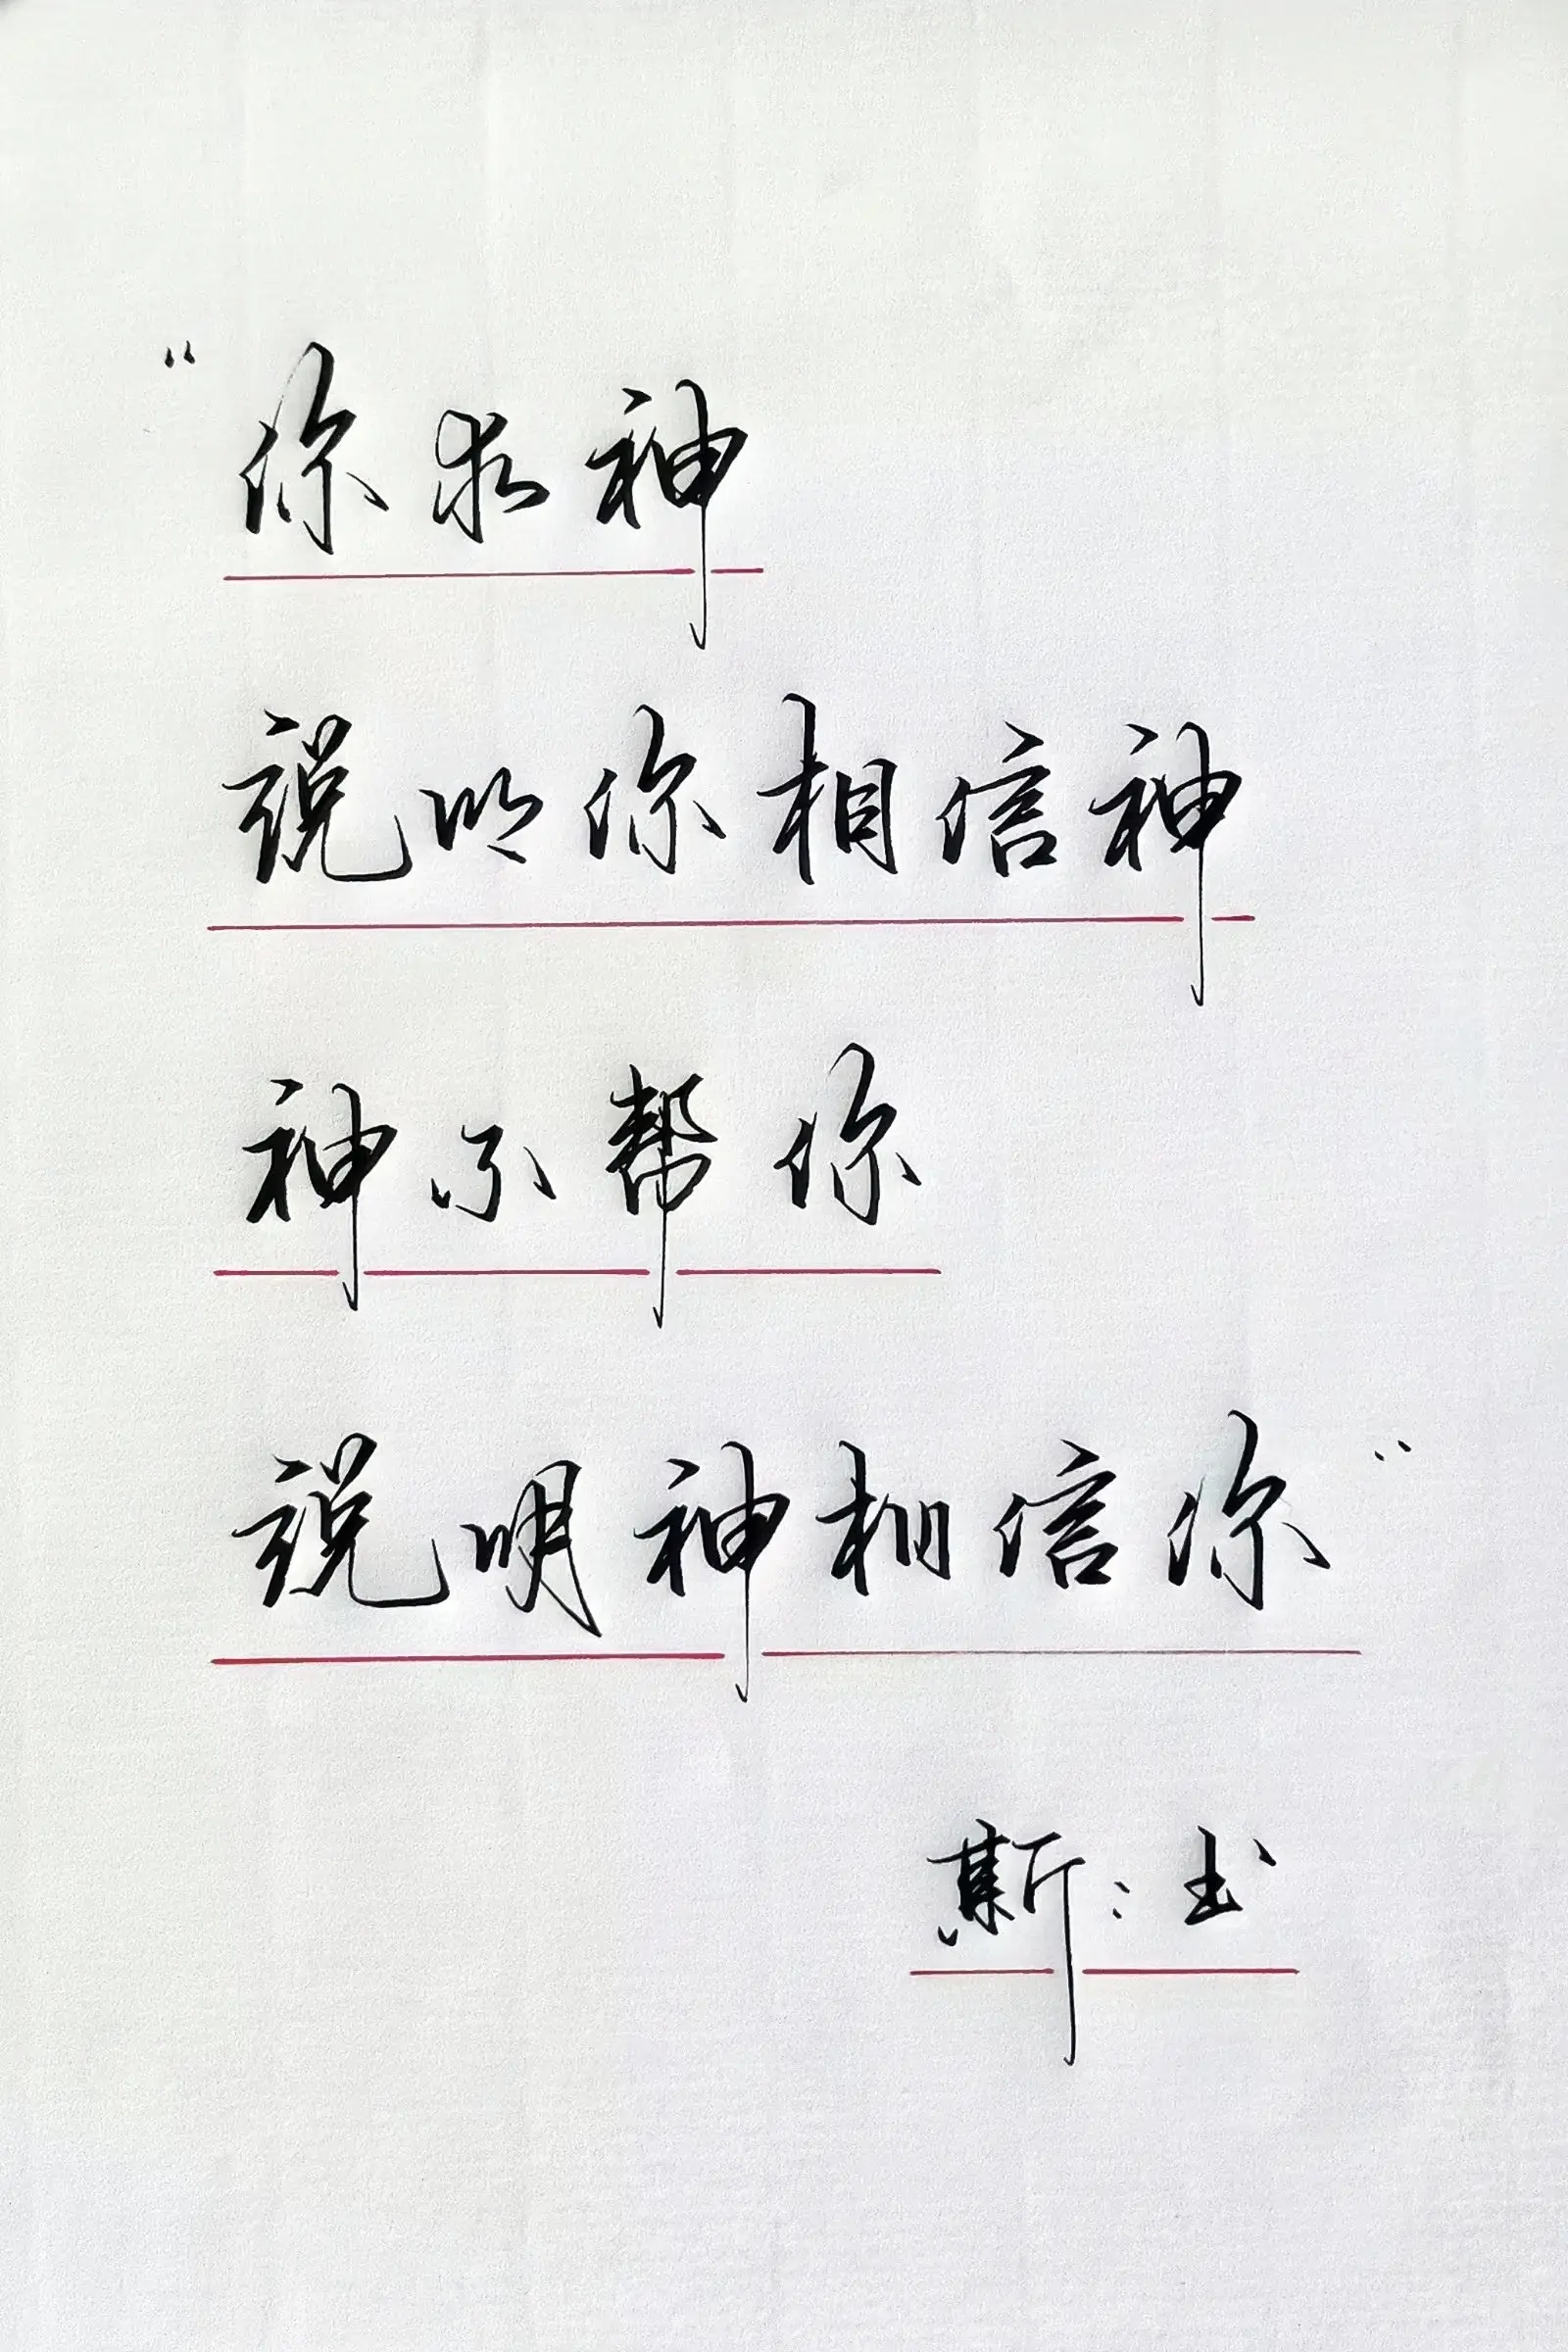 “你求神
说明你相信神
神不帮你
说明神相信你”
斯：书